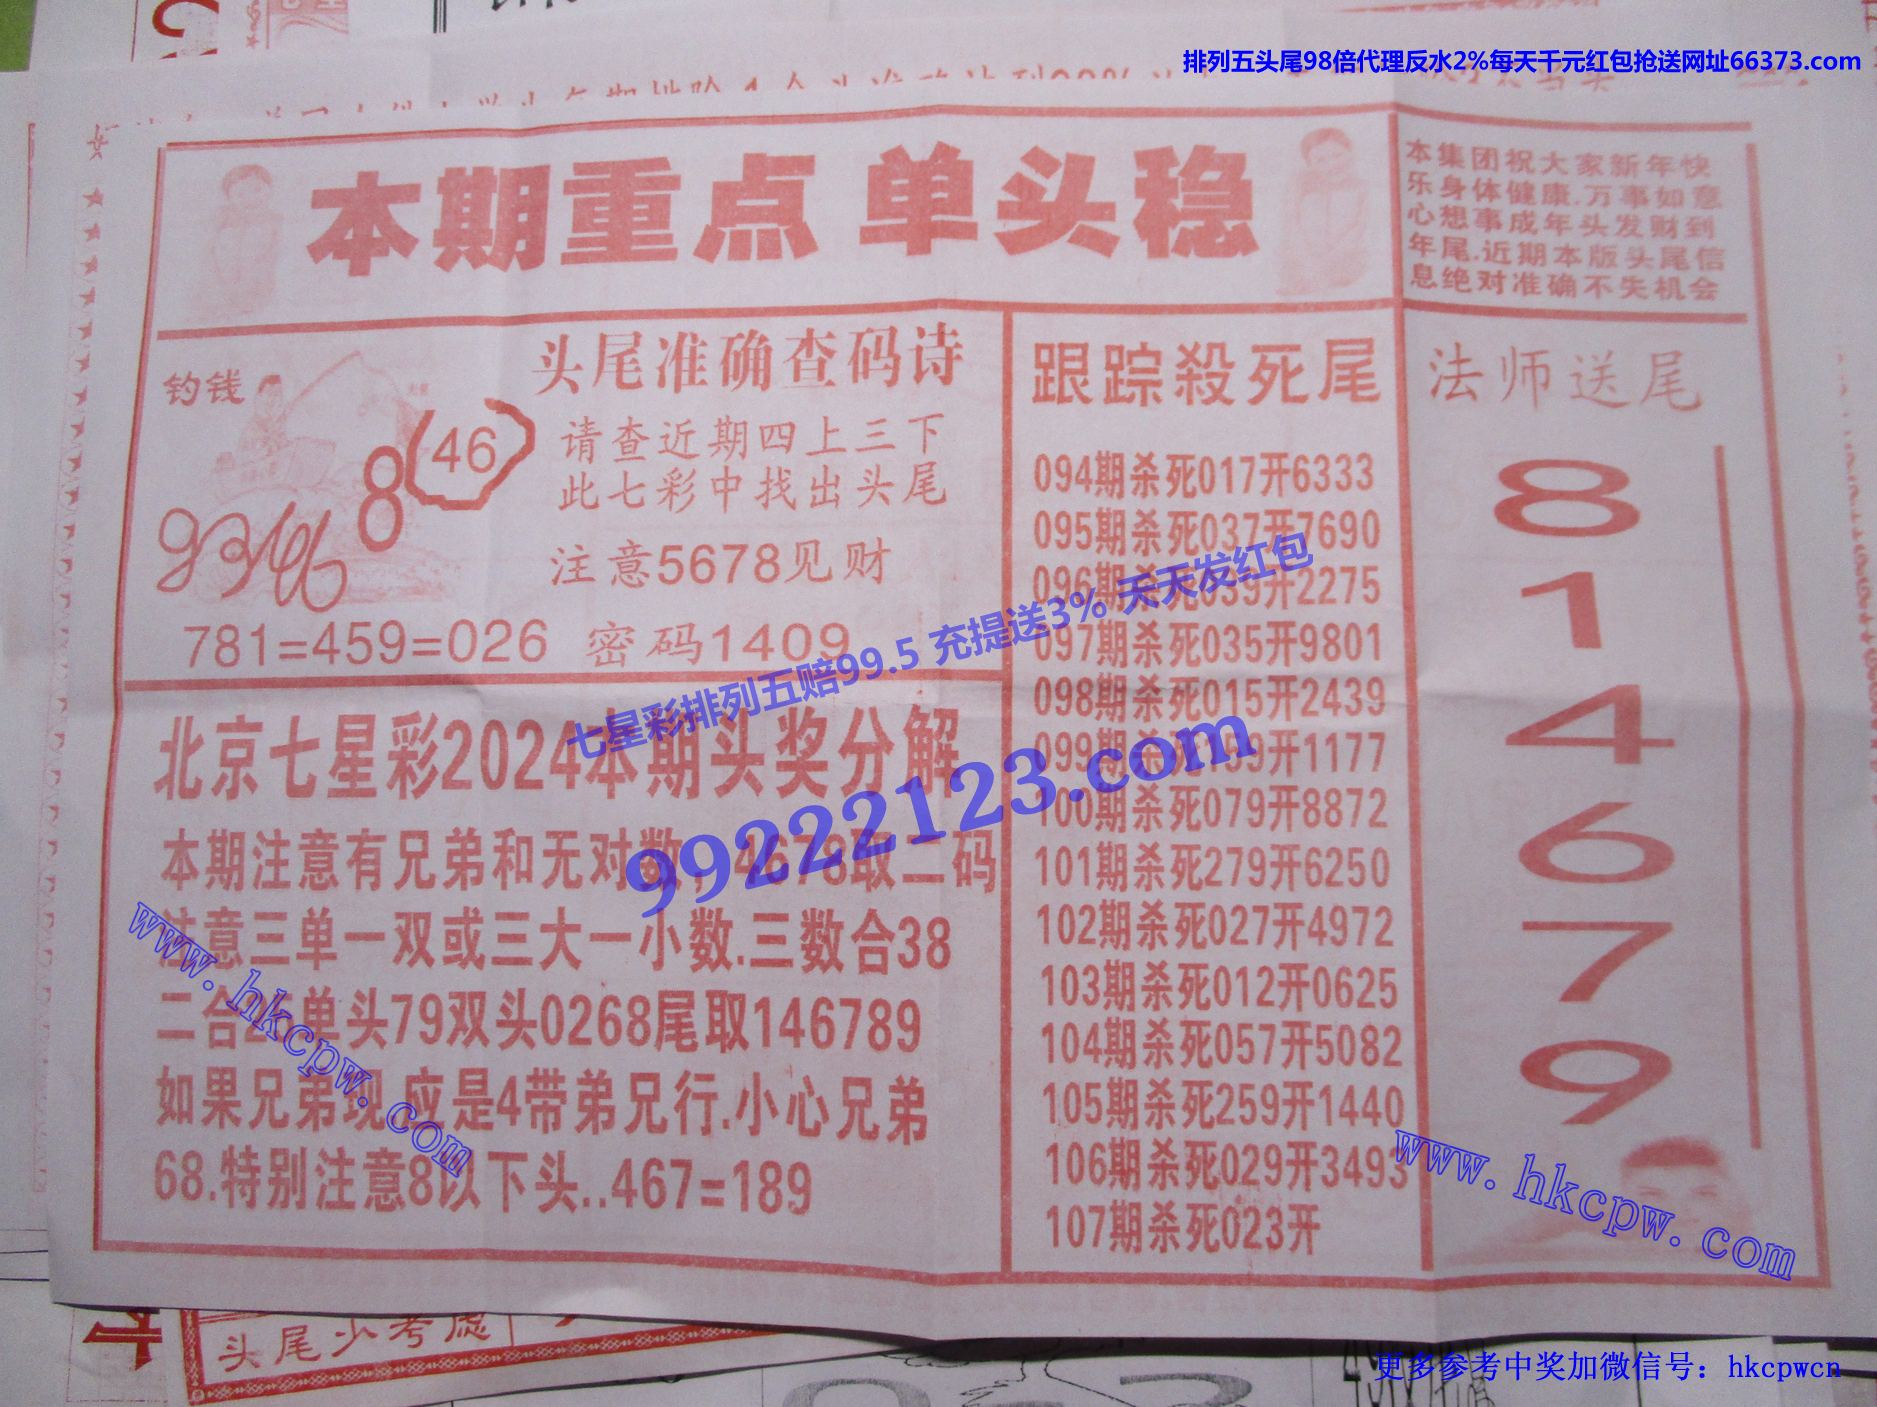 排列五头尾98倍代理反水2%每天千元红包抢送网址66373.com
本期重点 单头稳
本集团祝大家新年快
乐身体健康.万事如意
心想事成年头发财到
年尾.近期本版头尾信
息绝对准确不失机会
钓钱
8
(46)
9346
头尾准确查码诗
请查近期四上三下
此七彩中找出头尾
注意5678见财
781=459=026 密码1409
北京七星彩2024本期头奖分解
本期注意有兄弟和无对数,4678取二码
注意三单一双或三大一小数.三数合38
二合25单头79双头0268尾取146789
如果兄弟现.应是4带弟兄行.小心兄弟
68.特别注意8以下头..467=189
跟踪殺死尾
094期杀死017开6333
095期杀死037开7690
096期杀死039开2275
097期杀死035开9801
098期杀死015开2439
099期杀死159开1177
100期杀死079开8872
101期杀死279开6250
102期杀死027开4972
103期杀死012开0625
104期杀死057开5082
105期杀死259开1440
106期杀死029开3493
107期杀死023开
法师送尾
8
1
4
6
7
9
七星彩排列五赔99.5 充提送3% 天天发红包
99222123.com
www.hkcpw.com
www.hkcpw.com
头尾少考虑
更多参考中奖加微信号：hkcpwcn